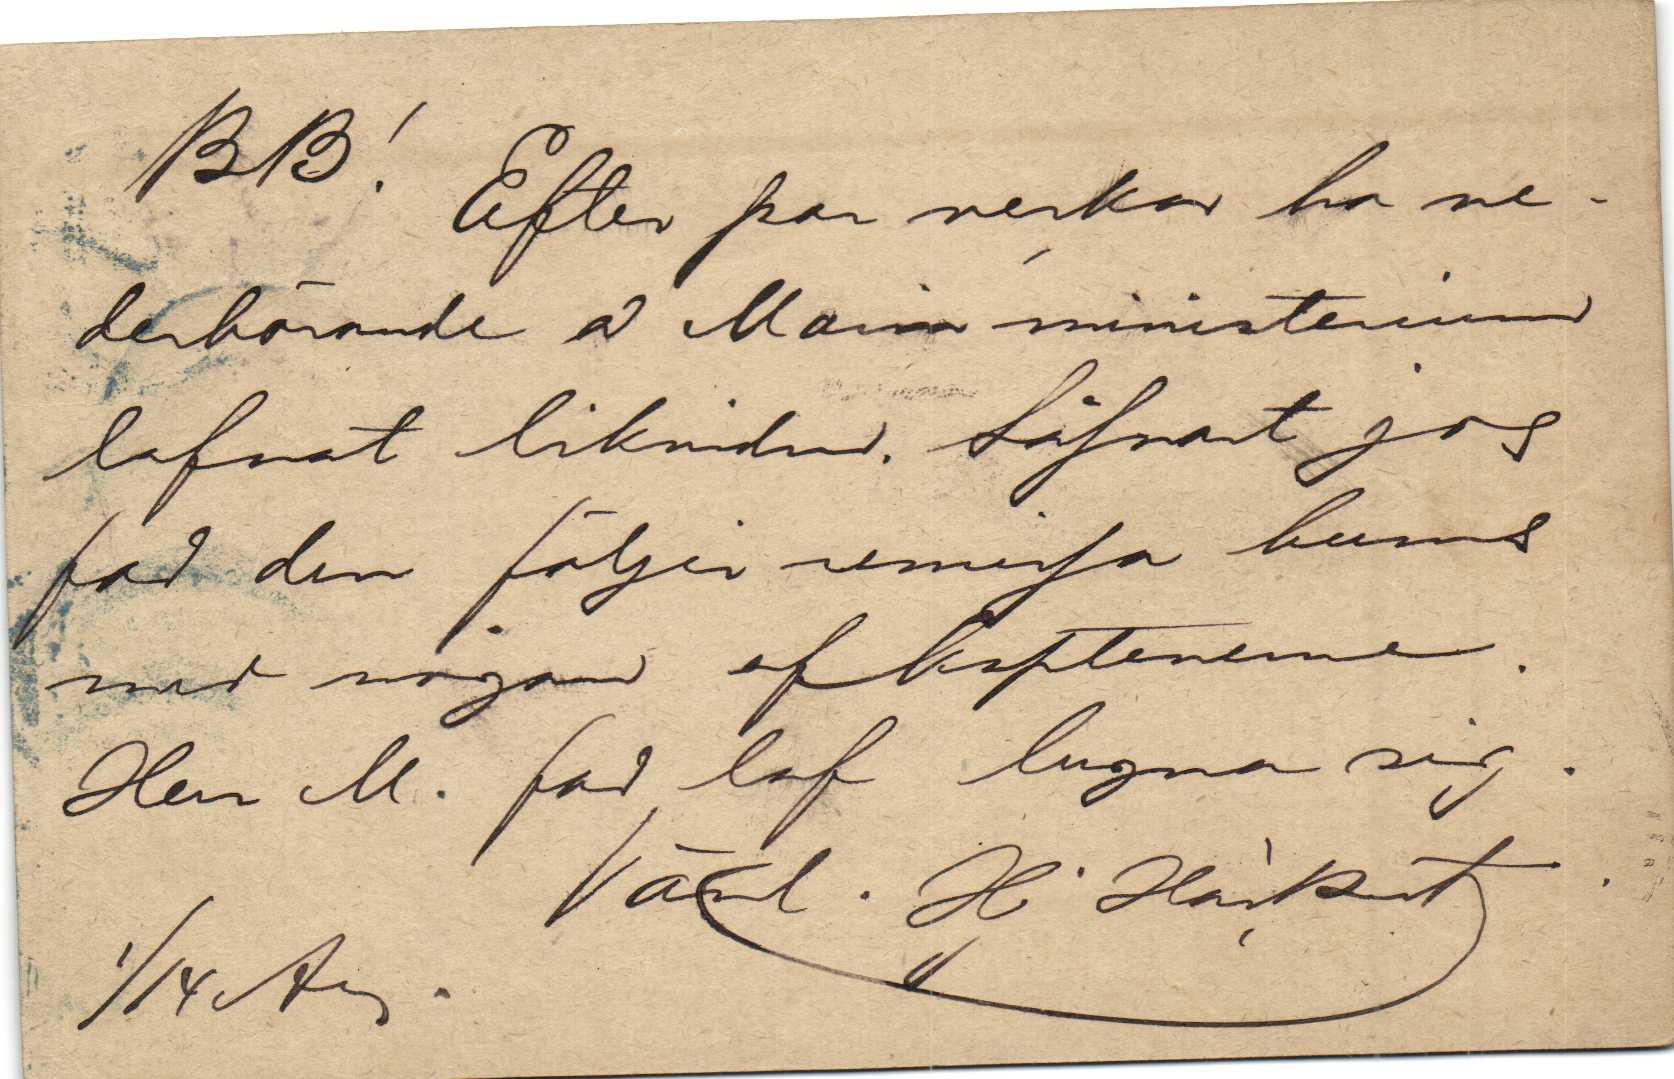 BB! Efter par veckor ha ve-
derbörande å Marinministerium
lofvat likvidera. Såsnart jag
får den följer remissa
med någon af kaptenerne.
Herr M. får lof lugna sig.
Vänl. H
1/14 Aug.